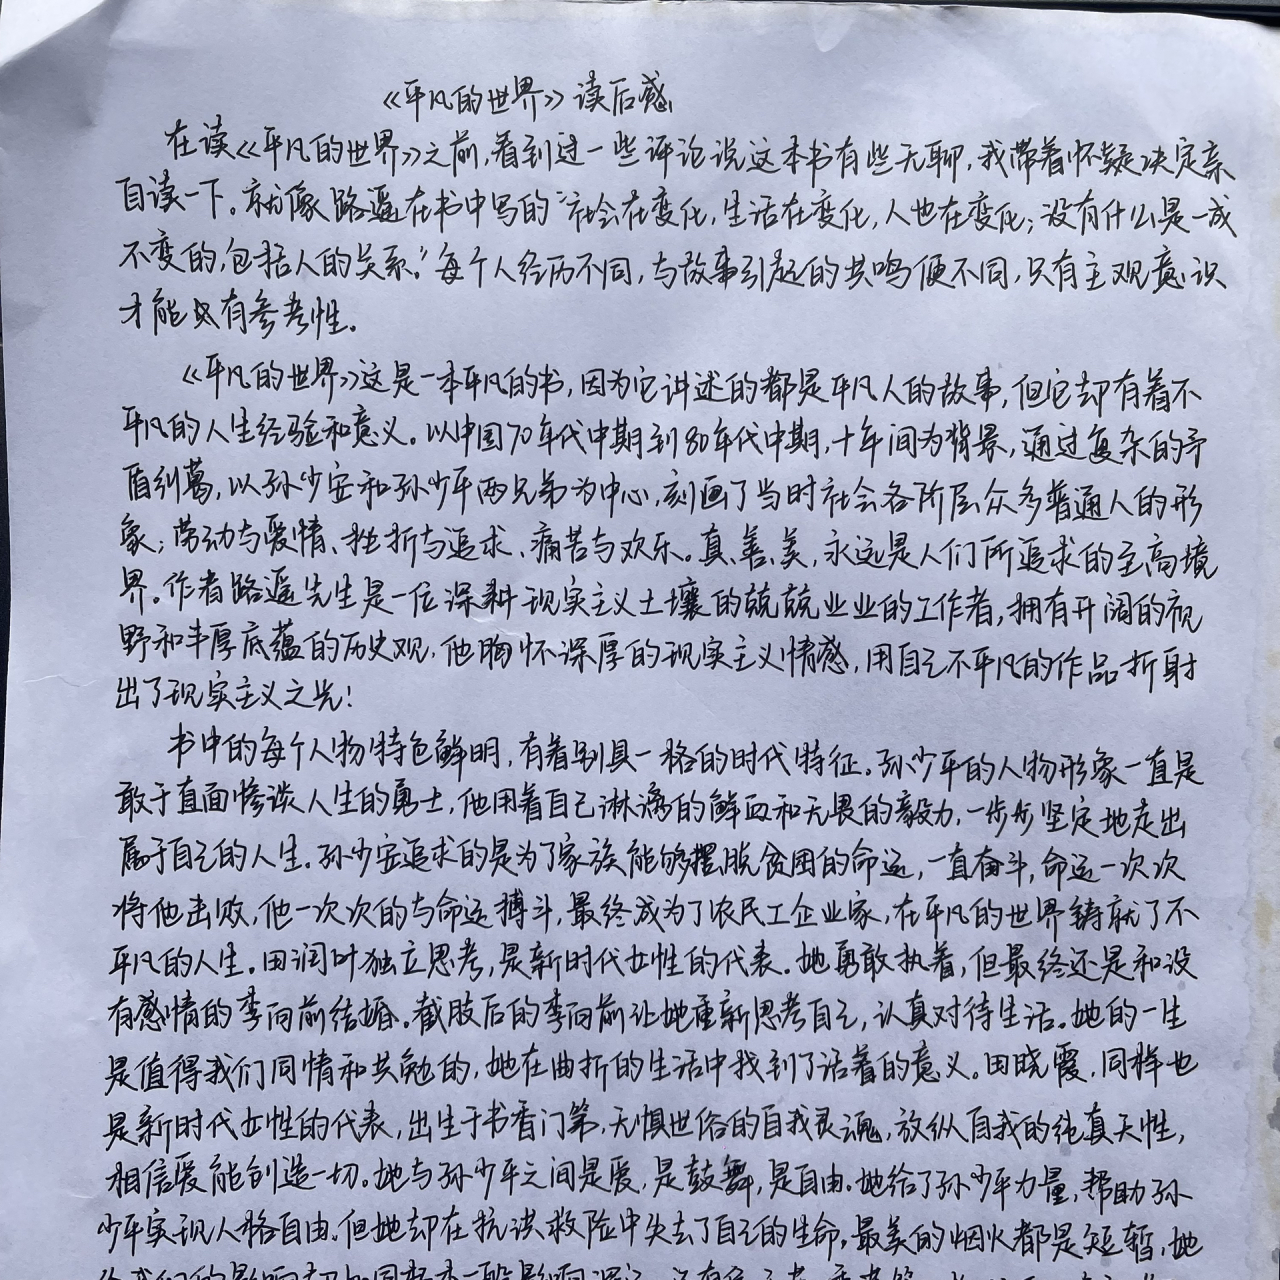 《平凡的世界》读后感
在读《平凡的世界》之前,看到过一些评论说这本书有些无聊,我带着怀疑决定亲
自读一下。就像路遥在书中写的“社会在变化,生活在变化,人也在变化;没有什么是一成
不变的,包括人的关系。”每个人经历不同,与故事引起的共鸣便不同,只有主观意识
才能具有参考性。
《平凡的世界》这是一本平凡的书,因为它讲述的都是平凡人的故事,但它却有着不
平凡的人生经验和意义。以中国70年代中期到80年代中期,十年间为背景,通过复杂的矛
盾纠葛,以孙少安和孙少平两兄弟为中心,刻画了当时社会各阶层众多普通人的形
象;劳动与爱情、挫折与追求、痛苦与欢乐。真、善、美,永远是人们所追求的至高境
界。作者路遥先生是一位深耕现实主义土壤的兢兢业业的工作者,拥有开阔的视
野和丰厚底蕴的历史观,他胸怀深厚的现实主义情感,用自己不平凡的作品折射
出了现实主义之光!
书中的每个人物特色鲜明,有着别具一格的时代特征。孙少平的人物形象一直是
敢于直面惨淡人生的勇士,他用着自己淋漓的鲜血和无畏的毅力,一步步坚定地走出
属于自己的人生。孙少安追求的是为了家族能够摆脱贫困的命运,一直奋斗,命运一次次
将他击败,他一次次的与命运搏斗,最终成为了农民工企业家,在平凡的世界铸就了不
平凡的人生。田润叶独立思考,是新时代女性的代表。她勇敢执着,但最终还是和没
有感情的李向前结婚。截肢后的李向前让她重新思考自己,认真对待生活。她的一生
是值得我们同情和共勉的,她在曲折的生活中找到了活着的意义。田晓霞,同样也
是新时代女性的代表,出生于书香门第,无惧世俗的自我灵魂,放纵自我的纯真天性,
相信爱能创造一切。她与孙少平之间是爱,是鼓舞,是自由。她给了孙少平力量,帮助孙
少平实现人格自由。但她却在抗洪救险中失去了自己的生命,最美的烟火都是短暂,她